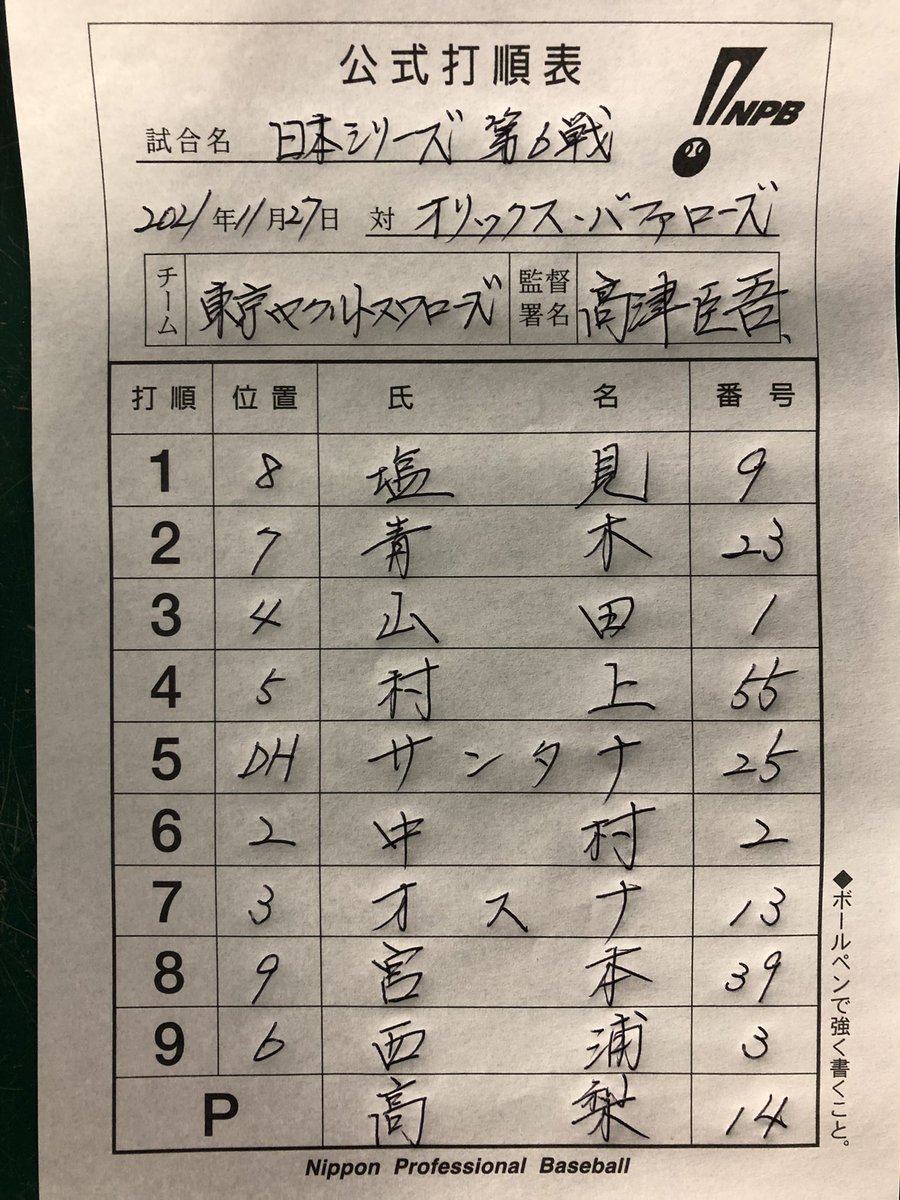 公式打順表
NPB
試合名 日本シリーズ 第6戦
2021年11月27日 対 オリックス・バファローズ
チーム 東京ヤクルトスワローズ 監督署名 高津臣吾
打順 位置 氏名 番号
1 8 塩見 9
2 7 青木 23
3 4 山田 1
4 5 村上 55
5 DH サンタナ 25
6 2 中村 2
7 3 オスナ 13
8 9 宮本 39
9 6 西浦 3
P 高梨 14
◆ボールペンで強く書くこと。
Nippon Professional Baseball